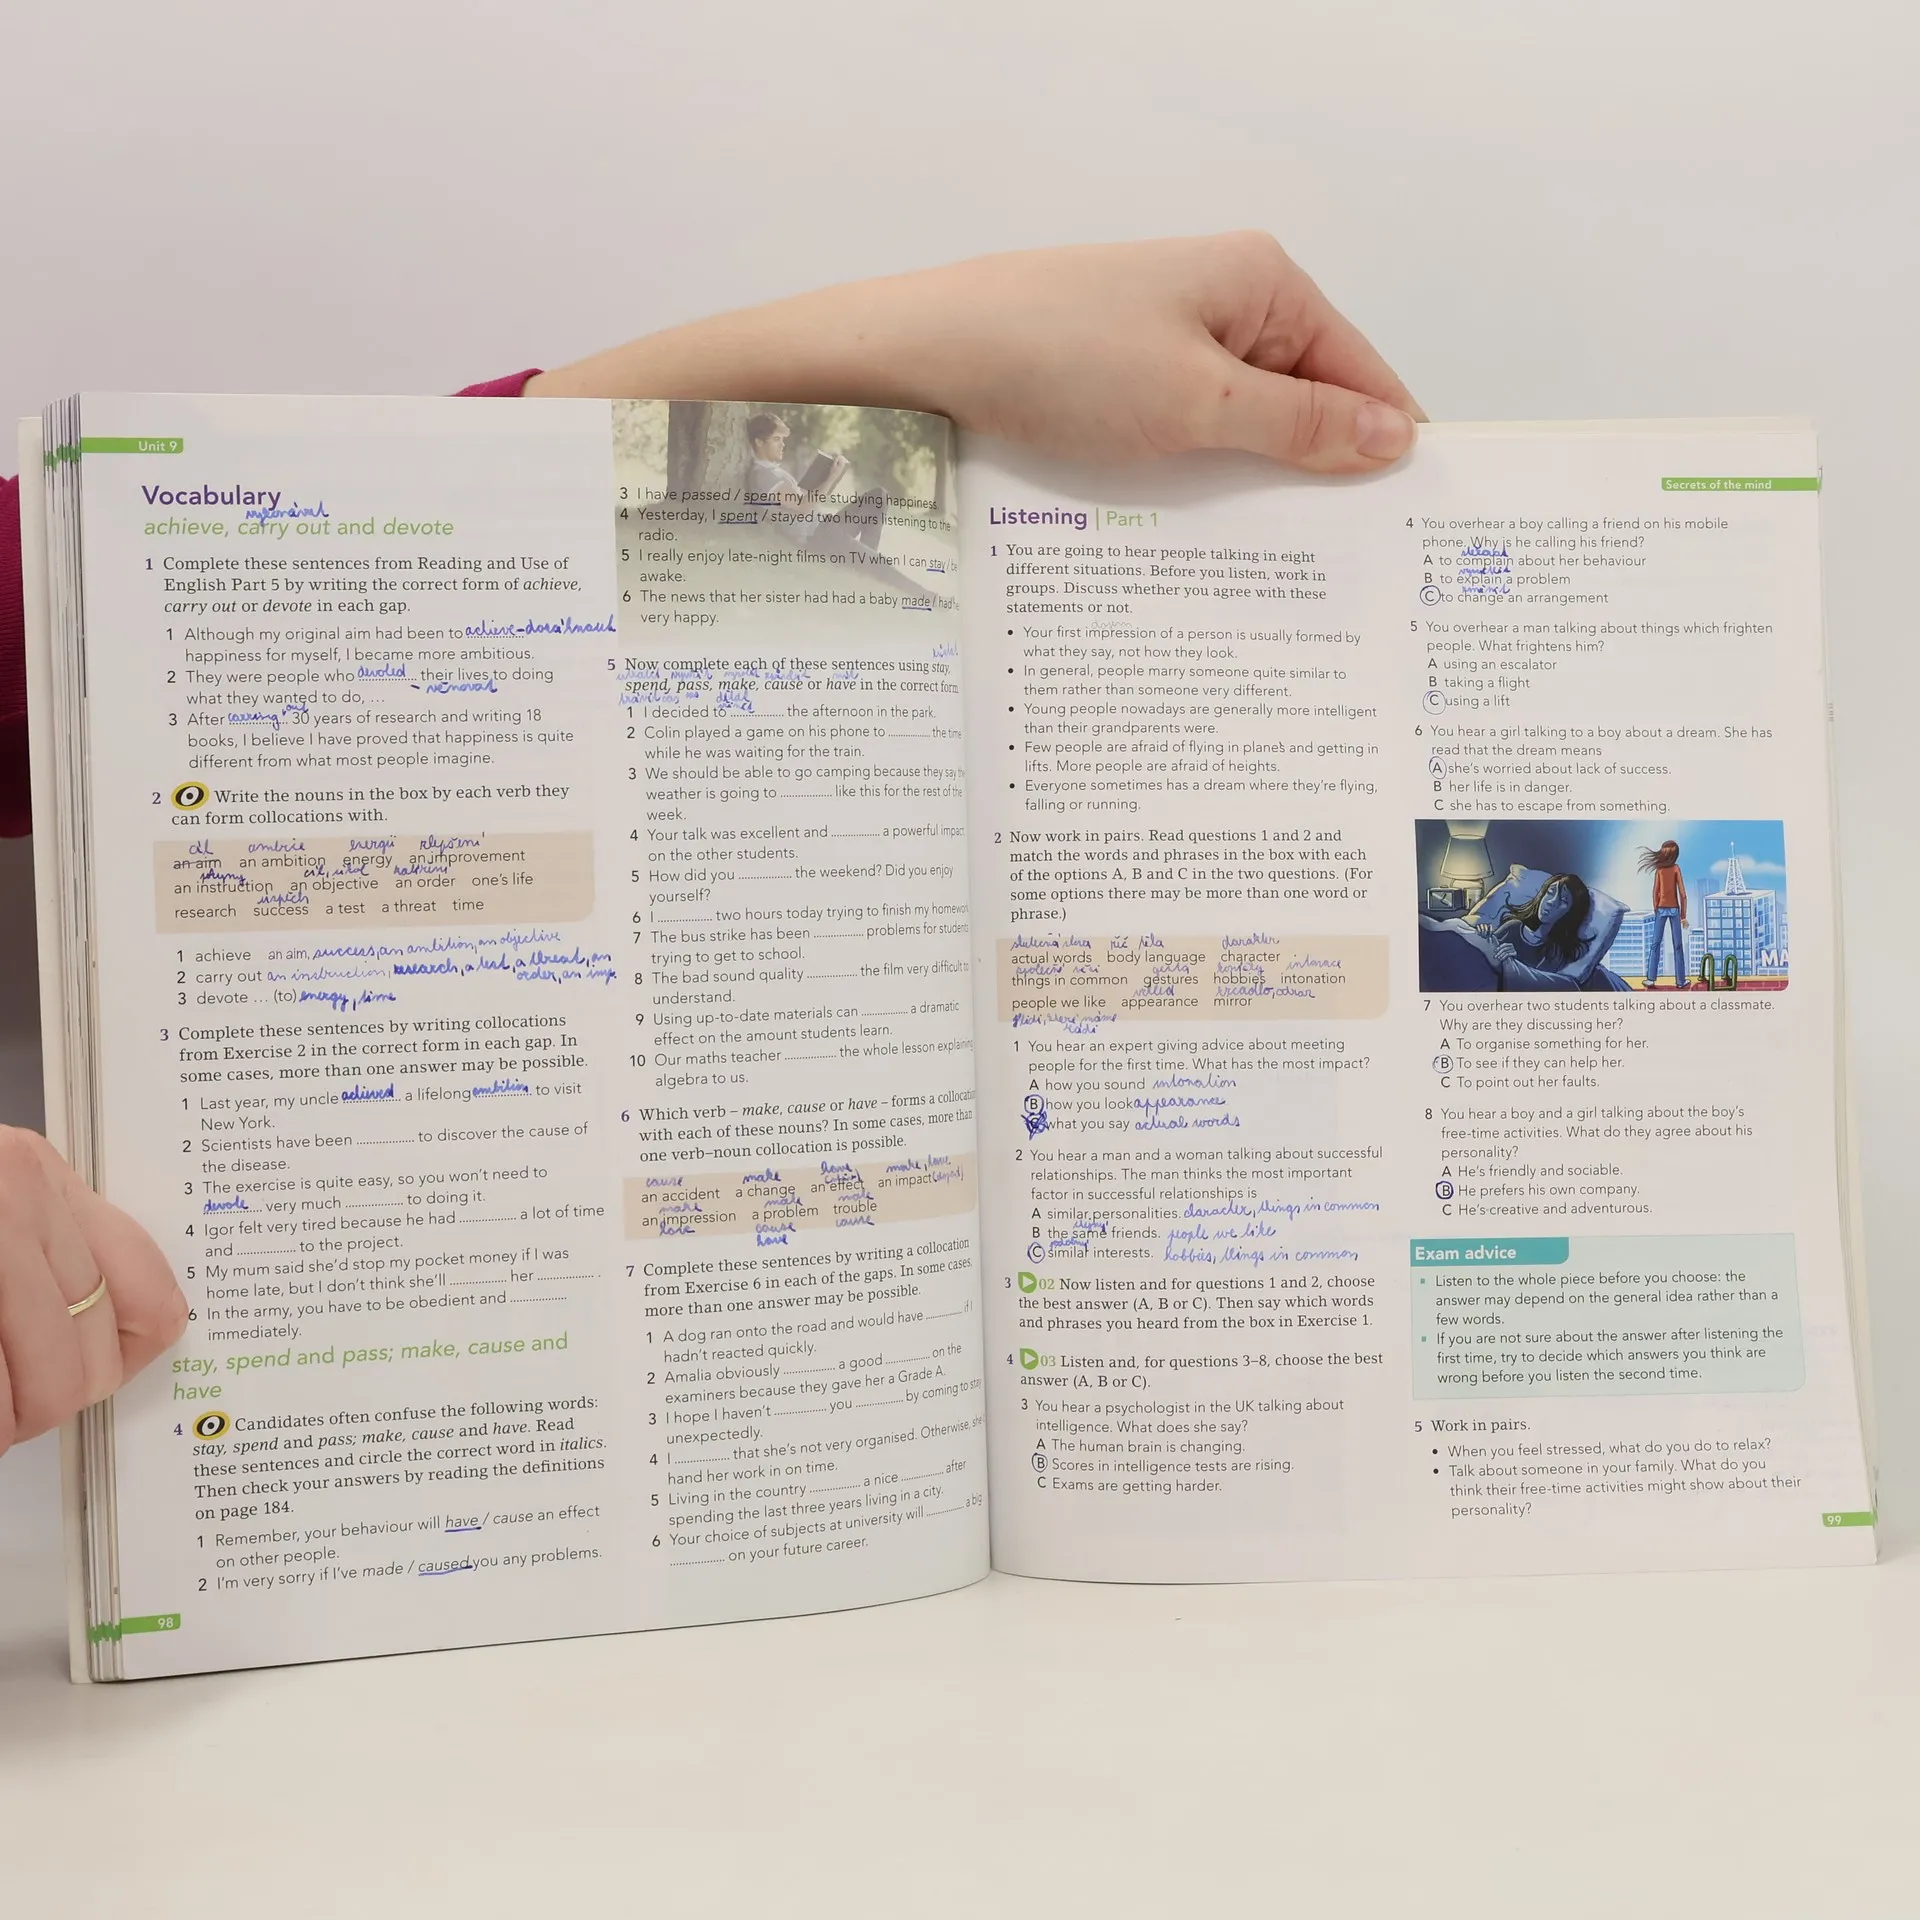 Unit 9
Vocabulary
achieve, carry out and devote
1 Complete these sentences from Reading and Use of
English Part 5 by writing the correct form of achieve,
carry out or devote in each gap.
1 Although my original aim had been to achieve
happiness for myself, I became more ambitious.
2 They were people who devoted their lives to doing
what they wanted to do, ...
věnovat
3 After carrying out 30 years of research and writing 18
books, I believe I have proved that happiness is quite
different from what most people imagine.
2 Write the nouns in the box by each verb they
can form collocations with.
cíl ambice energii zlepšení
an aim an ambition energy an improvement
an instruction an objective an order one's life
research success a test a threat time
1 achieve an aim, success, an ambition, an objective
2 carry out an instruction, research, a test, a threat, an
order, an imp.
3 devote ... (to) energy, time
3 Complete these sentences by writing collocations
from Exercise 2 in the correct form in each gap. In
some cases, more than one answer may be possible.
1 Last year, my uncle achieved a lifelong ambition to visit
New York.
2 Scientists have been ............ to discover the cause of
the disease.
3 The exercise is quite easy, so you won't need to
devote very much ............ to doing it.
4 Igor felt very tired because he had ............ a lot of time
and ............ to the project.
5 My mum said she'd stop my pocket money if I was
home late, but I don't think she'll ............ her ............ .
6 In the army, you have to be obedient and ............
immediately.
stay, spend and pass; make, cause and
have
4 Candidates often confuse the following words:
stay, spend and pass; make, cause and have. Read
these sentences and circle the correct word in italics.
Then check your answers by reading the definitions
on page 184.
1 Remember, your behaviour will have / cause an effect
on other people.
2 I'm very sorry if I've made / caused you any problems.
98
3 I have passed / spent my life studying happiness.
4 Yesterday, I spent / stayed two hours listening to the
radio.
5 I really enjoy late-night films on TV when I can stay / be
awake.
6 The news that her sister had had a baby made / had he
very happy.
5 Now complete each of these sentences using stay,
spend, pass, make, cause or have in the correct form
1 I decided to ............ the afternoon in the park.
2 Colin played a game on his phone to ............ the time
while he was waiting for the train.
3 We should be able to go camping because they say the
weather is going to ............ like this for the rest of the
week.
4 Your talk was excellent and ............ a powerful impact
on the other students.
5 How did you ............ the weekend? Did you enjoy
yourself?
6 I ............ two hours today trying to finish my homework
7 The bus strike has been ............ problems for students
trying to get to school.
8 The bad sound quality ............ the film very difficult to
understand.
9 Using up-to-date materials can ............ a dramatic
effect on the amount students learn.
10 Our maths teacher ............ the whole lesson explaining
algebra to us.
6 Which verb – make, cause or have – forms a collocation
with each of these nouns? In some cases, more than
one verb–noun collocation is possible.
cause make have make, have
an accident a change an effect an impact
make make make
an impression a problem trouble
have cause cause
have
7 Complete these sentences by writing a collocation
from Exercise 6 in each of the gaps. In some cases,
more than one answer may be possible.
1 A dog ran onto the road and would have ............ if I
hadn't reacted quickly.
2 Amalia obviously ............ a good ............ on the
examiners because they gave her a Grade A.
3 I hope I haven't ............ you ............ by coming to stay
unexpectedly.
4 I ............ that she's not very organised. Otherwise, she
hand her work in on time.
5 Living in the country ............ a nice ............ after
spending the last three years living in a city.
6 Your choice of subjects at university will ............ a big
............ on your future career.
Secrets of the mind
Listening | Part 1
1 You are going to hear people talking in eight
different situations. Before you listen, work in
groups. Discuss whether you agree with these
statements or not.
• Your first impression of a person is usually formed by
what they say, not how they look.
• In general, people marry someone quite similar to
them rather than someone very different.
• Young people nowadays are generally more intelligent
than their grandparents were.
• Few people are afraid of flying in planes and getting in
lifts. More people are afraid of heights.
• Everyone sometimes has a dream where they're flying,
falling or running.
2 Now work in pairs. Read questions 1 and 2 and
match the words and phrases in the box with each
of the options A, B and C in the two questions. (For
some options there may be more than one word or
phrase.)
řeč těla
actual words body language character
things in common gestures hobbies intonation
people we like appearance mirror
1 You hear an expert giving advice about meeting
people for the first time. What has the most impact?
A how you sound intonation
B how you look appearance
C what you say actual words
2 You hear a man and a woman talking about successful
relationships. The man thinks the most important
factor in successful relationships is
A similar personalities. character, things in common
B the same friends. people we like
C similar interests. hobbies, things in common
3 02 Now listen and for questions 1 and 2, choose
the best answer (A, B or C). Then say which words
and phrases you heard from the box in Exercise 1.
4 03 Listen and, for questions 3–8, choose the best
answer (A, B or C).
3 You hear a psychologist in the UK talking about
intelligence. What does she say?
A The human brain is changing.
B Scores in intelligence tests are rising.
C Exams are getting harder.
4 You overhear a boy calling a friend on his mobile
phone. Why is he calling his friend?
A to complain about her behaviour
B to explain a problem
C to change an arrangement
5 You overhear a man talking about things which frighten
people. What frightens him?
A using an escalator
B taking a flight
C using a lift
6 You hear a girl talking to a boy about a dream. She has
read that the dream means
A she's worried about lack of success.
B her life is in danger.
C she has to escape from something.
MA
7 You overhear two students talking about a classmate.
Why are they discussing her?
A To organise something for her.
B To see if they can help her.
C To point out her faults.
8 You hear a boy and a girl talking about the boy's
free-time activities. What do they agree about his
personality?
A He's friendly and sociable.
B He prefers his own company.
C He's creative and adventurous.
Exam advice
▪ Listen to the whole piece before you choose: the
answer may depend on the general idea rather than a
few words.
▪ If you are not sure about the answer after listening the
first time, try to decide which answers you think are
wrong before you listen the second time.
5 Work in pairs.
• When you feel stressed, what do you do to relax?
• Talk about someone in your family. What do you
think their free-time activities might show about their
personality?
99